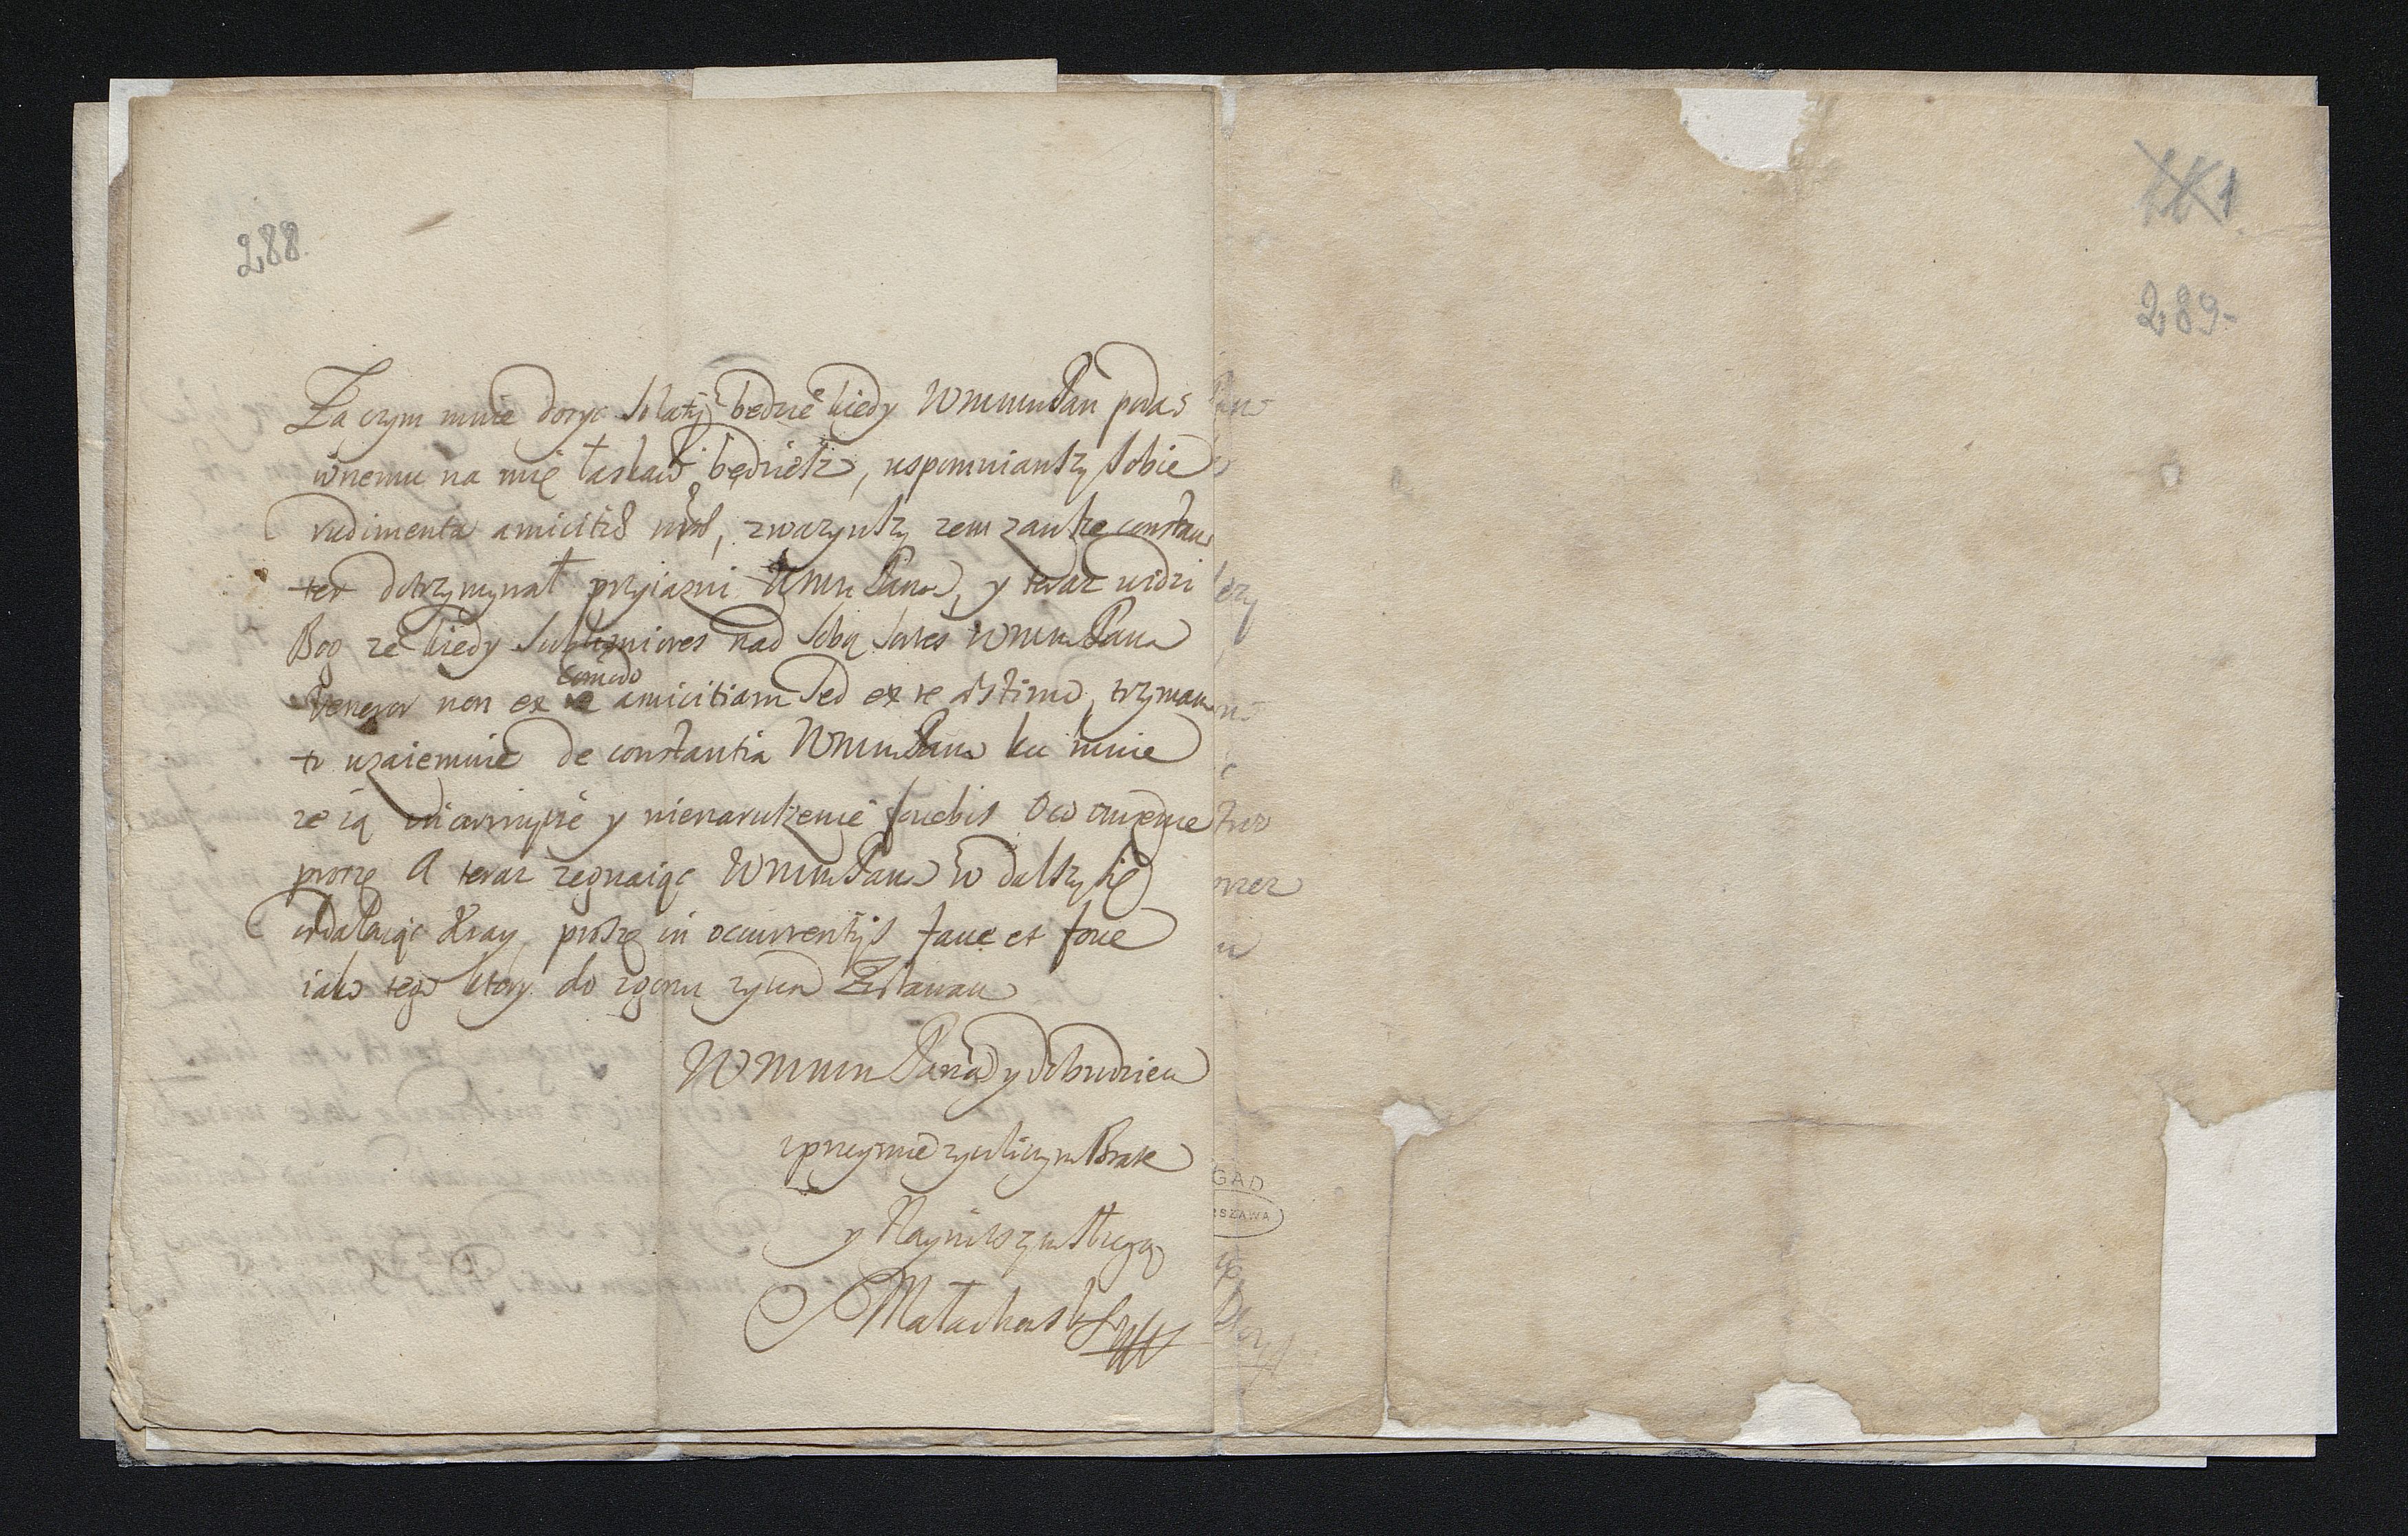 288.
Za czym mnie dosyc Solatij będzie kiedy WMMMPan podas
wnemu na mię łaskaw będziesz, wspomniawszy sobie
rudimenta amicitiæ, zwazywszy zem zawsze constan
ter dotrzymywał przyiazni WMM Pana, y teraz widzi
Bog ze kiedy Sublimiores nad sobą sortes WMM Pana
Veneror non ex comodo amicitiam Sed ex re æstimo, trzymam
to wzaiemnie de constantia WMM Pana ku mnie
ze ią y nienaruszenie fovebis O co uniżenie
proszę A teraz zegnaiąc WMM Pana w dalszy się
oddalaiąc Kray, proszę in occurrentijs fave et fove
iako tego ktory do zgonu zycia Zostawam
WMMM Pana y Dobrodzieia
uprzeymie zyczliwym Bratem
y Nayniższym Sługą
Małachowski
1
289.
GAD
RSZAWA